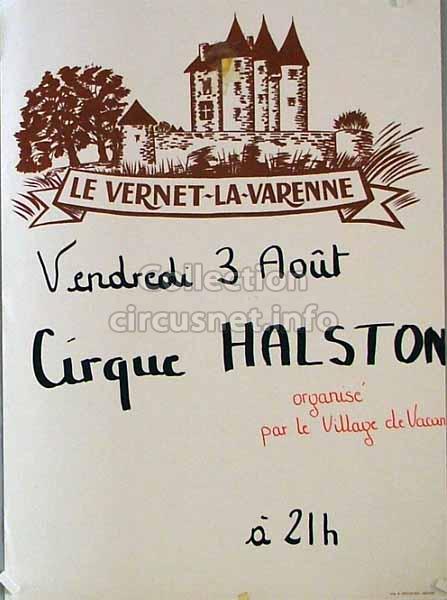 LE VERNET-LA-VARENNE
Vendredi 3 Août
Collection
circusnet.info
Cirque HALSTON
organisé
par le Village de Vacan
à 21h